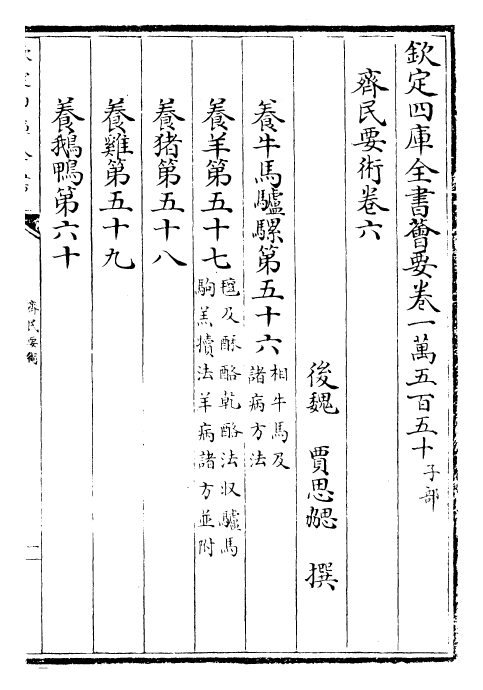 欽定四庫全書薈要卷一萬五百五十 子部
齊民要術卷六
後魏 賈思勰 撰
養牛馬驢騾第五十六 相牛馬及諸病方法
養羊第五十七 氊及酥酪乾酪法収驢馬駒羔犢法羊病諸方並附
養猪第五十八
養雞第五十九
養鵝鴨第六十
齊民要術
一